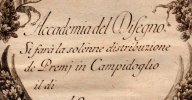 Accademia del Disegno.
Si farà la solenne distribuzione
de Premj in Campidoglio
il dì